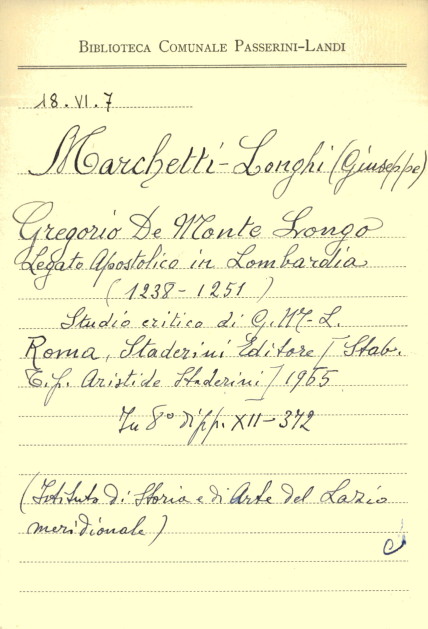 BIBLIOTECA COMUNALE PASSERINI-LANDI
18.VI.7
Marchetti-Longhi (Giuseppe)
Gregorio De Monte Longo
Legato Apostolico in Lombardia
(1238-1251)
Studio critico di G.M-L.
Roma, Staderini Editore [Stab.
Tip. Aristide Staderini] 1965
In 8° di pp. XII-372
(Istituto di Storia e di Arte del Lazio
meridionale)